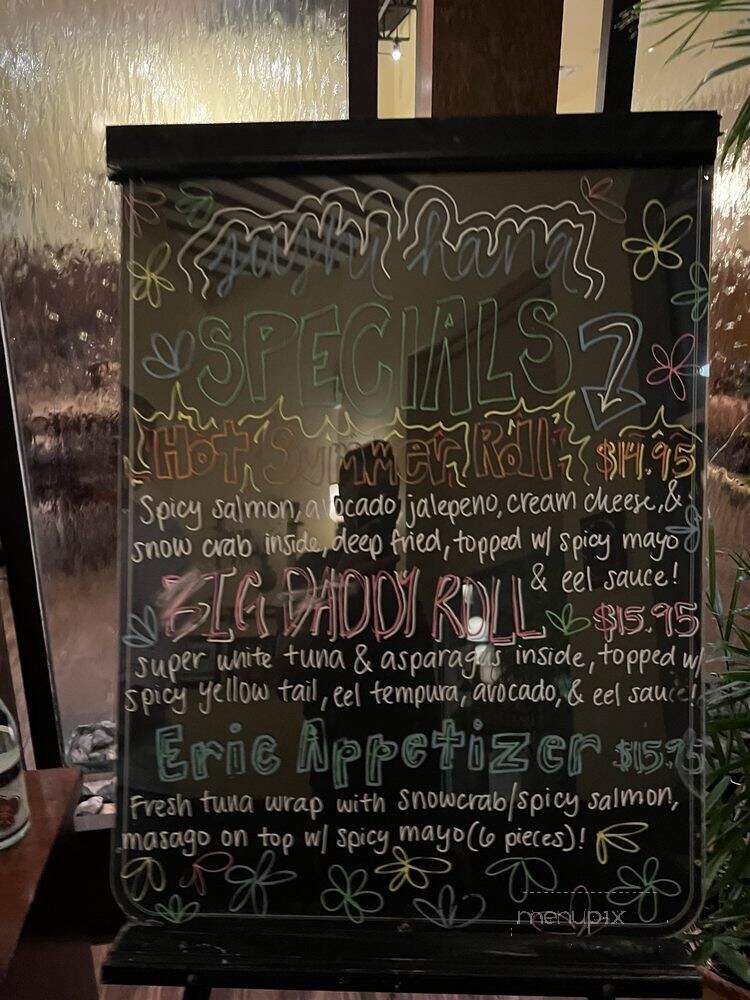 sushi hana
SPECIALS
Hot Summer Roll $14.95
Spicy salmon, avocado, jalepeno, cream cheese, &
snow crab inside, deep fried, topped w/ spicy mayo
& eel sauce!
BIG DADDY ROLL $15.95
super white tuna & asparagus inside, topped w/
spicy yellow tail, eel tempura, avocado, & eel sauce!
Eric Appetizer $15.95
Fresh tuna wrap with snowcrab/spicy salmon,
masago on top w/ spicy mayo (6 pieces)!
menupix